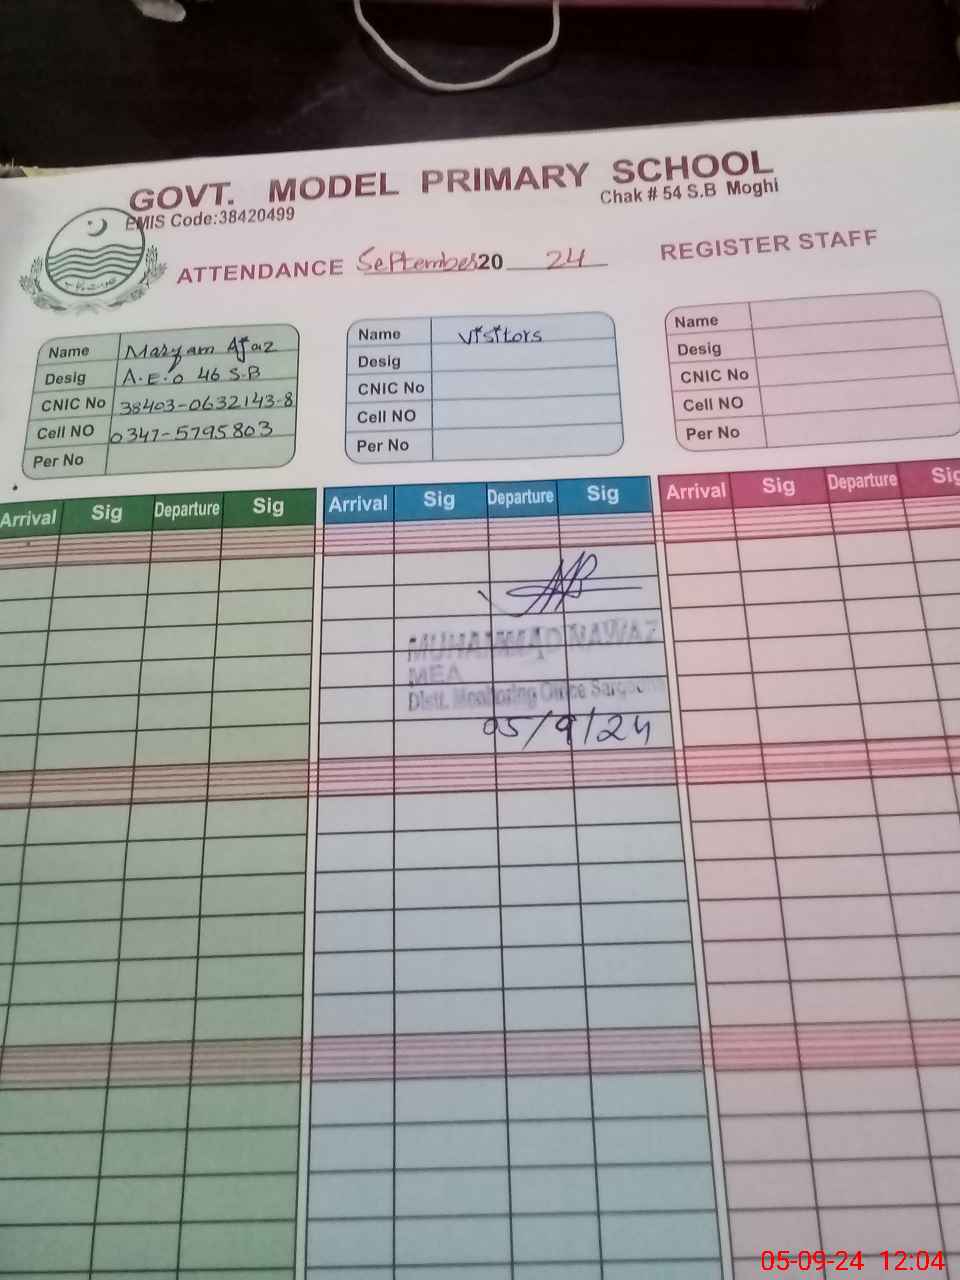 GOVT. MODEL PRIMARY SCHOOL
EMIS Code:38420499
Chak # 54 S.B Moghi
ATTENDANCE September 20 24 REGISTER STAFF
Name Maryam Ajaz
Desig A.E.O 46 S.B
CNIC No 38403-0632143-8
Cell NO 0347-5795803
Per No
Name Visitors
Desig
CNIC No
Cell NO
Per No
Name
Desig
CNIC No
Cell NO
Per No
Arrival Sig Departure Sig Arrival Sig Departure Sig Arrival Sig Departure Sig
MUHAMMAD NAWAZ
MEA
Distt. Monitoring Office Sargodha
05/9/24
05-09-24 12:04